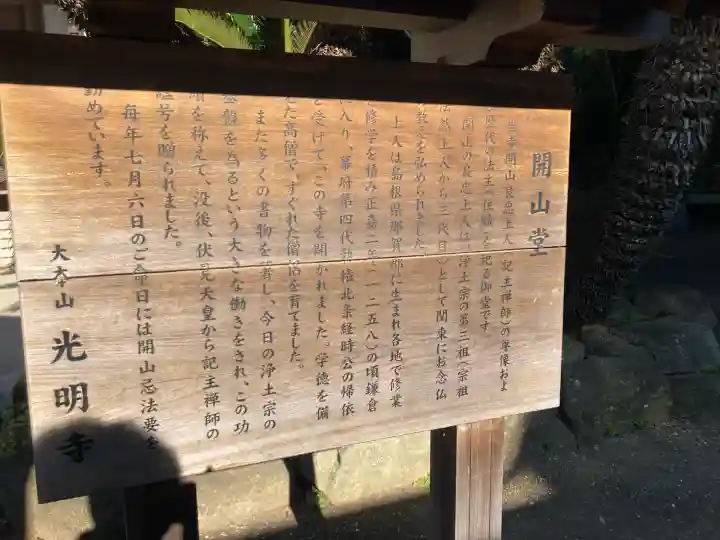 開山堂
当寺開山良忠上人(記主禅師)の尊像およ
歴代の法主(住職)を祀る御堂です
開山の良忠上人は、浄土宗の第三祖(宗祖
法然上人から三代目)として関東にお念仏
の教えを弘められました。
上人は島根県那賀郡に生まれ各地で修業
と修学を積み正嘉二年(一二五八)の頃鎌倉
に入り、幕府第四代執権北条経時公の帰依
を受けて、この寺を開かれました。学徳を備
えた高僧で、すぐれた僧侶を育てました。
また多くの書物を著し、今日の浄土宗の
基盤を為るという大きな働きをされ、この功
績を称えて、没後、伏見天皇から記主禅師の
諡号を贈られました。
毎年七月六日のご命日には開山忌法要を
勤めています。
大本山 光明寺